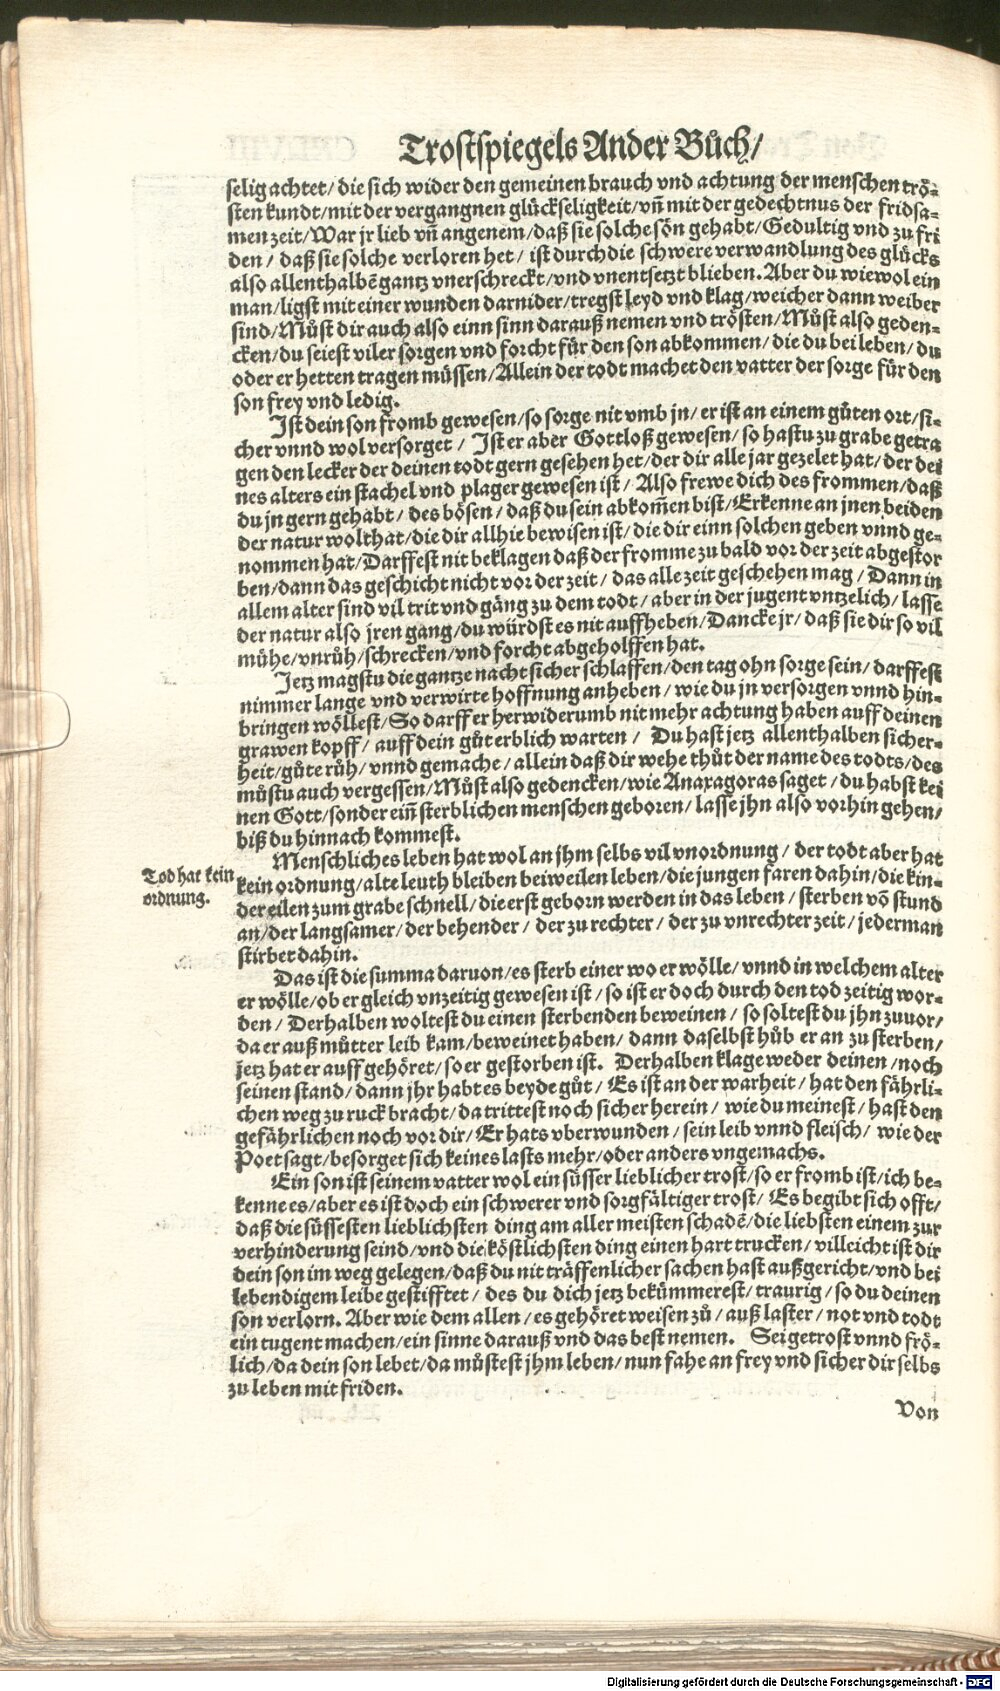 Trostspiegels Ander Bůch/
selig achtet/ die sich wider den gemeinen brauch vnd achtung der menschen trö-
sten kundt/ mit der vergangnen glückseligkeit/ vñ mit der gedechtnus der fridsa-
men zeit/ War jr lieb vñ angenem/ daß sie solche sön gehabt/ Gedultig vnd zu fri
den/ daß sie solche verloren het/ ist durch die schwere verwandlung des glücks
also allenthalbẽ gantz vnerschreckt/ vnd vnentsetzt blieben. Aber du wiewol ein
man/ ligst mit einer wunden darnider/ tregst leyd vnd klag/ weicher dann weiber
sind/ Můst dir auch also einn sinn darauß nemen vnd trösten/ Můst also geden-
cken/ du seiest viler sorgen vnd forcht für den son abkommen/ die du bei leben/ du
oder er hetten tragen müssen/ Allein der todt machet den vatter der sorge für den
son frey vnd ledig.
Ist dein son fromb gewesen/ so sorge nit vmb jn/ er ist an einem gůten ort/ si-
cher vnnd wol versorget/ Ist er aber Gottloß gewesen/ so hastu zu grabe getra
gen den lecker der deinen todt gern gesehen het/ der dir alle jar gezelet hat/ der dei
nes alters ein stachel vnd plager gewesen ist/ Also frewe dich des frommen/ daß
du jn gern gehabt/ des bösen/ daß du sein abkom̃en bist/ Erkenne an jnen beiden
der natur wolthat/ die dir allhie bewisen ist/ die dir einn solchen geben vnnd ge-
nommen hat/ Darffest nit beklagen daß der fromme zu bald vor der zeit abgestor
ben/ dann das geschicht nicht vor der zeit/ das alle zeit geschehen mag/ Dann in
allem alter sind vil trit vnd gäng zu dem todt/ aber in der jugent vntzelich/ lasse
der natur also jren gang/ du würdst es nit auffheben/ Dancke jr/ daß sie dir so vil
mühe/ vnrůh/ schrecken/ vnd forcht abgeholffen hat.
Jetz magstu die gantze nacht sicher schlaffen/ den tag ohn sorge sein/ darffest
nimmer lange vnd verwirte hoffnung anheben/ wie du jn versorgen vnnd hin-
bringen wöllest/ So darff er herwiderumb nit mehr achtung haben auff deinen
grawen kopff/ auff dein gůt erblich warten/ Du hast jetz allenthalben sicher-
heit/ gůte růh/ vnnd gemache/ allein daß dir wehe thůt der name des todts/ des
můstu auch vergessen/ Můst also gedencken/ wie Anaxagoras saget/ du habst kei
nen Gott/ sonder eiñ sterblichen menschen geboren/ lasse jhn also vorhin gehen/
biß du hinnach kommest.
Tod hat kein
ordnung.
Menschliches leben hat wol an jhm selbs vil vnordnung/ der todt aber hat
kein ordnung/ alte leuth bleiben beiweilen leben/ die jungen faren dahin/ die kin-
der eilen zum grabe schnell/ die erst geborn werden in das leben/ sterben võ stund
an/ der langsamer/ der behender/ der zu rechter/ der zu vnrechter zeit/ jederman
stirbet dahin.
Das ist die summa daruon/ es sterb einer wo er wölle/ vnnd in welchem alter
er wölle/ ob er gleich vnzeitig gewesen ist/ so ist er doch durch den tod zeitig wor-
den/ Derhalben woltest du einen sterbenden beweinen/ so soltest du jhn zuuor/
da er auß můtter leib kam/ beweinet haben/ dann daselbst hůb er an zu sterben/
jetz hat er auff gehöret/ so er gestorben ist. Derhalben klage weder deinen/ noch
seinen stand/ dann jhr habt es beyde gůt/ Es ist an der warheit/ hat den fährli-
chen weg zu ruck bracht/ da trittest noch sicher herein/ wie du meinest/ hast den
gefährlichen noch vor dir/ Er hats vberwunden/ sein leib vnnd fleisch/ wie der
Poet sagt/ besorget sich keines lasts mehr/ oder anders vngemachs.
Ein son ist seinem vatter wol ein süsser lieblicher trost/ so er fromb ist/ ich be-
kenne es/ aber es ist doch ein schwerer vnd sorgfältiger trost/ Es begibt sich offt/
daß die süssesten lieblichsten ding am aller meisten schadẽ/ die liebsten einem zur
verhinderung seind/ vnd die köstlichsten ding einen hart trucken/ villeicht ist dir
dein son im weg gelegen/ daß du nit träffenlicher sachen hast außgericht/ vnd bei
lebendigem leibe gestifftet/ des du dich jetz bekümmerest/ traurig/ so du deinen
son verlorn. Aber wie dem allen/ es gehöret weisen zů/ auß laster/ not vnd todt
ein tugent machen/ ein sinne darauß vnd das best nemen. Sei getrost vnnd frö-
lich/ da dein son lebet/ da můstest jhm leben/ nun fahe an frey vnd sicher dir selbs
zu leben mit friden.
Von
Digitalisierung gefördert durch die Deutsche Forschungsgemeinschaft - DFG